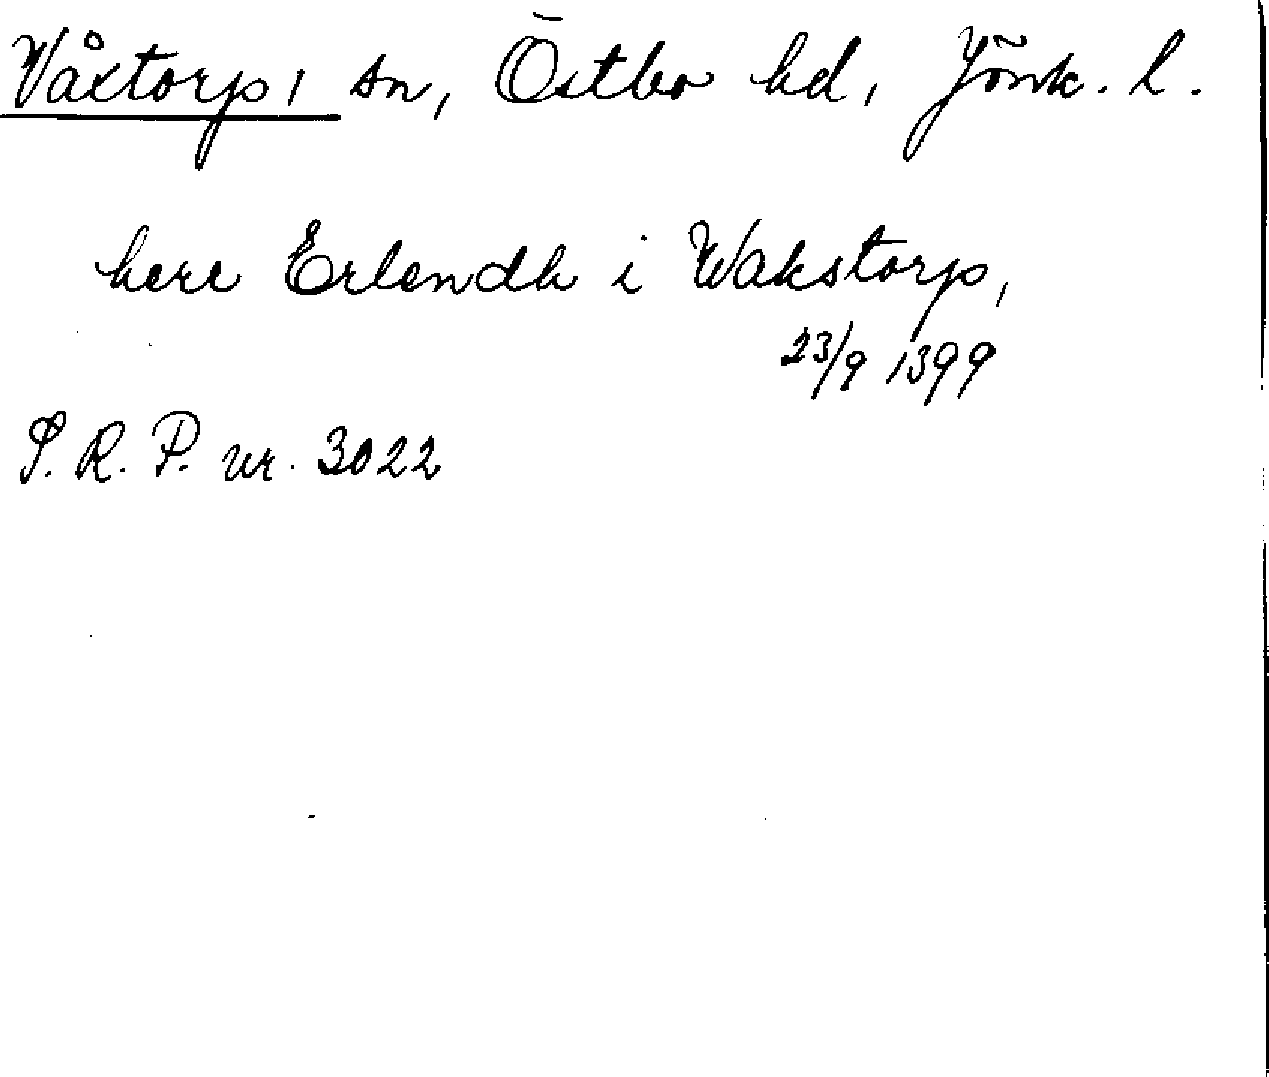 Våxtorp, sn, Östbo hd, Jönk. l.
herr Erlendh i Wakstorp,
23/9 1399
S. R. P. nr. 3022